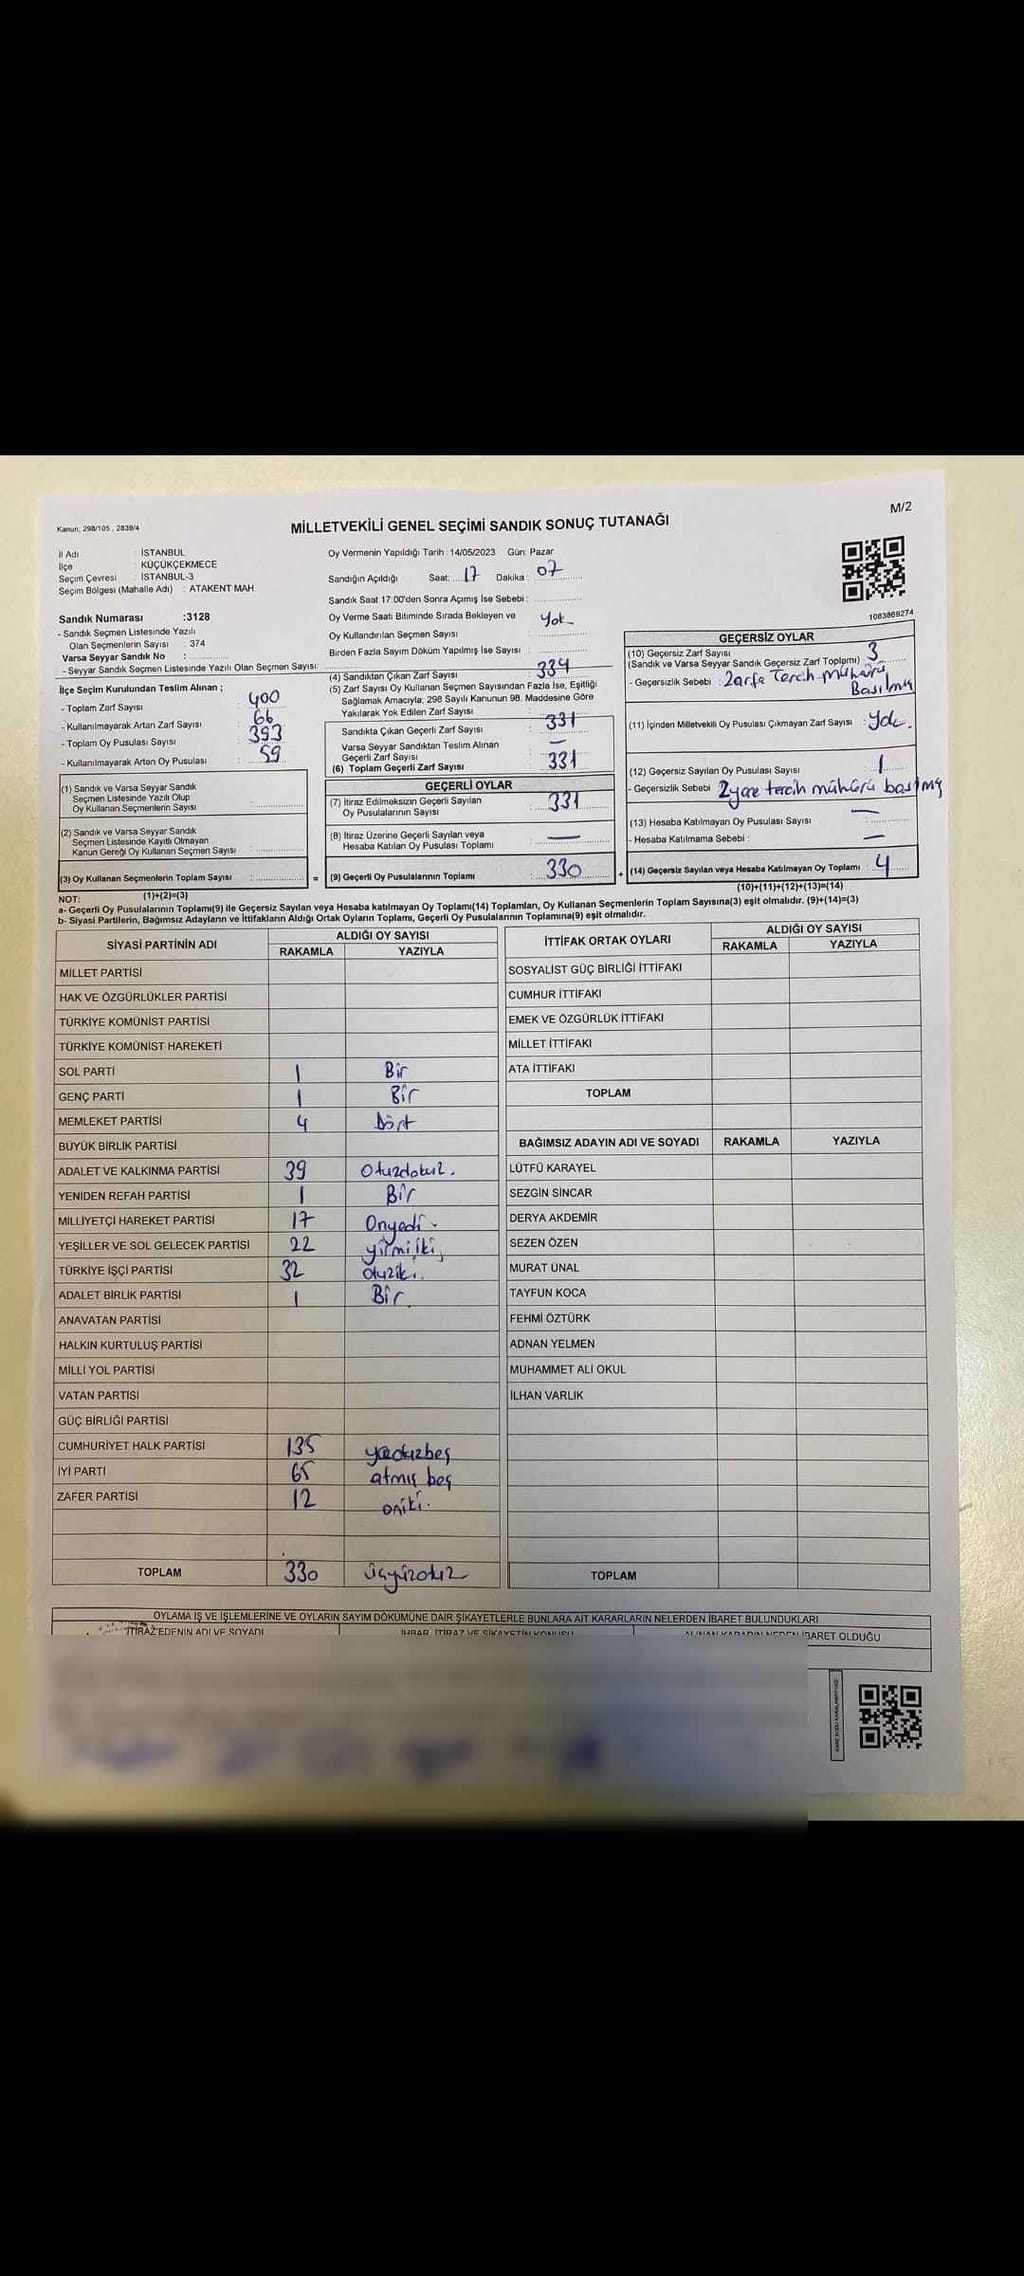 Kanun; 298/105 , 2839/4
MİLLETVEKİLİ GENEL SEÇİMİ SANDIK SONUÇ TUTANAĞI
M/2
İl Adı : İSTANBUL
İlçe : KÜÇÜKÇEKMECE
Seçim Çevresi : İSTANBUL-3
Seçim Bölgesi (Mahalle Adı) : ATAKENT MAH.
Oy Vermenin Yapıldığı Tarih :14/05/2023 Gün: Pazar
Sandığın Açıldığı Saat: 17 Dakika: 07
Sandık Saat 17:00'den Sonra Açımış İse Sebebi :
Oy Verme Saati Bitiminde Sırada Bekleyen ve Yok
Oy Kullandırılan Seçmen Sayısı
Birden Fazla Sayım Döküm Yapılmış İse Sayısı :
1083869274
Sandık Numarası :3128
- Sandık Seçmen Listesinde Yazılı
Olan Seçmenlerin Sayısı : 374
Varsa Seyyar Sandık No :
- Seyyar Sandık Seçmen Listesinde Yazılı Olan Seçmen Sayısı:
İlçe Seçim Kurulundan Teslim Alınan ;
- Toplam Zarf Sayısı : 400
- Kullanılmayarak Artan Zarf Sayısı : 66
- Toplam Oy Pusulası Sayısı : 393
- Kullanılmayarak Artan Oy Pusulası : 59
(1) Sandık ve Varsa Seyyar Sandık
Seçmen Listesinde Yazılı Olup
Oy Kullanan Seçmenlerin Sayısı :
(2) Sandık ve Varsa Seyyar Sandık
Seçmen Listesinde Kayıtlı Olmayan
Kanun Gereği Oy Kullanan Seçmen Sayısı :
(3) Oy Kullanan Seçmenlerin Toplam Sayısı :
(1)+(2)=(3)
(4) Sandıktan Çıkan Zarf Sayısı : 334
(5) Zarf Sayısı Oy Kullanan Seçmen Sayısından Fazla İse, Eşitliği
Sağlamak Amacıyla, 298 Sayılı Kanunun 98. Maddesine Göre
Yakılarak Yok Edilen Zarf Sayısı :
Sandıkta Çıkan Geçerli Zarf Sayısı : 331
Varsa Seyyar Sandıktan Teslim Alınan
Geçerli Zarf Sayısı : —
(6) Toplam Geçerli Zarf Sayısı : 331
GEÇERLİ OYLAR
(7) İtiraz Edilmeksizin Geçerli Sayılan
Oy Pusulalarının Sayısı : 331
(8) İtiraz Üzerine Geçerli Sayılan veya
Hesaba Katılan Oy Pusulası Toplamı : —
= (9) Geçerli Oy Pusulalarının Toplamı : 330
GEÇERSİZ OYLAR
(10) Geçersiz Zarf Sayısı : 3
(Sandık ve Varsa Seyyar Sandık Geçersiz Zarf Toplamı)
- Geçersizlik Sebebi : Zarfa Tercih mühürü
Basılmış
(11) İçinden Milletvekili Oy Pusulası Çıkmayan Zarf Sayısı : Yok.
(12) Geçersiz Sayılan Oy Pusulası Sayısı : 1
- Geçersizlik Sebebi 2 yere tercih mühürü basılmış
(13) Hesaba Katılmayan Oy Pusulası Sayısı : —
- Hesaba Katılmama Sebebi : —
+ (14) Geçersiz Sayılan veya Hesaba Katılmayan Oy Toplamı : 4
(10)+(11)+(12)+(13)=(14)
NOT:
a- Geçerli Oy Pusulalarının Toplamı(9) ile Geçersiz Sayılan veya Hesaba katılmayan Oy Toplamı(14) Toplamları, Oy Kullanan Seçmenlerin Toplam Sayısına(3) eşit olmalıdır. (9)+(14)=(3)
b- Siyasi Partilerin, Bağımsız Adayların ve İttifakların Aldığı Ortak Oyların Toplamı, Geçerli Oy Pusulalarının Toplamına(9) eşit olmalıdır.
SİYASİ PARTİNİN ADI ALDIĞI OY SAYISI
RAKAMLA YAZIYLA
MİLLET PARTİSİ
HAK VE ÖZGÜRLÜKLER PARTİSİ
TÜRKİYE KOMÜNİST PARTİSİ
TÜRKİYE KOMÜNİST HAREKETİ
SOL PARTİ 1 Bir
GENÇ PARTİ 1 Bir
MEMLEKET PARTİSİ 4 Dört
BÜYÜK BİRLİK PARTİSİ
ADALET VE KALKINMA PARTİSİ 39 Otuzdokuz.
YENİDEN REFAH PARTİSİ 1 Bir
MİLLİYETÇİ HAREKET PARTİSİ 17 Onyedi.
YEŞİLLER VE SOL GELECEK PARTİSİ 22 yirmiiki
TÜRKİYE İŞÇİ PARTİSİ 32 otuziki.
ADALET BİRLİK PARTİSİ 1 Bir.
ANAVATAN PARTİSİ
HALKIN KURTULUŞ PARTİSİ
MİLLİ YOL PARTİSİ
VATAN PARTİSİ
GÜÇ BİRLİĞİ PARTİSİ
CUMHURİYET HALK PARTİSİ 135 yüzotuzbeş
İYİ PARTİ 65 atmış beş
ZAFER PARTİSİ 12 oniki.
TOPLAM 330 üçyüzotuz
İTTİFAK ORTAK OYLARI ALDIĞI OY SAYISI
RAKAMLA YAZIYLA
SOSYALİST GÜÇ BİRLİĞİ İTTİFAKI
CUMHUR İTTİFAKI
EMEK VE ÖZGÜRLÜK İTTİFAKI
MİLLET İTTİFAKI
ATA İTTİFAKI
TOPLAM
BAĞIMSIZ ADAYIN ADI VE SOYADI RAKAMLA YAZIYLA
LÜTFÜ KARAYEL
SEZGİN SİNCAR
DERYA AKDEMİR
SEZEN ÖZEN
MURAT ÜNAL
TAYFUN KOCA
FEHMİ ÖZTÜRK
ADNAN YELMEN
MUHAMMET ALİ OKUL
İLHAN VARLIK
TOPLAM
OYLAMA İŞ VE İŞLEMLERİNE VE OYLARIN SAYIM DÖKÜMÜNE DAİR ŞİKAYETLERLE BUNLARA AİT KARARLARIN NELERDEN İBARET BULUNDUKLARI
İTİRAZ EDENİN ADI VE SOYADI İHBAR, İTİRAZ VE ŞİKAYETİN KONUSU ALINAN KARARIN NEDEN İBARET OLDUĞU